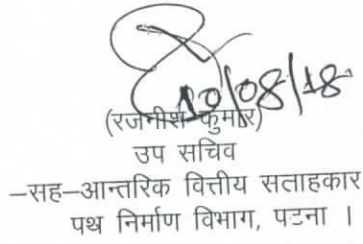 10/08/18
(रजनीश कुमार)
उप सचिव
–सह–आन्तरिक वित्तीय सलाहकार
पथ निर्माण विभाग, पटना ।